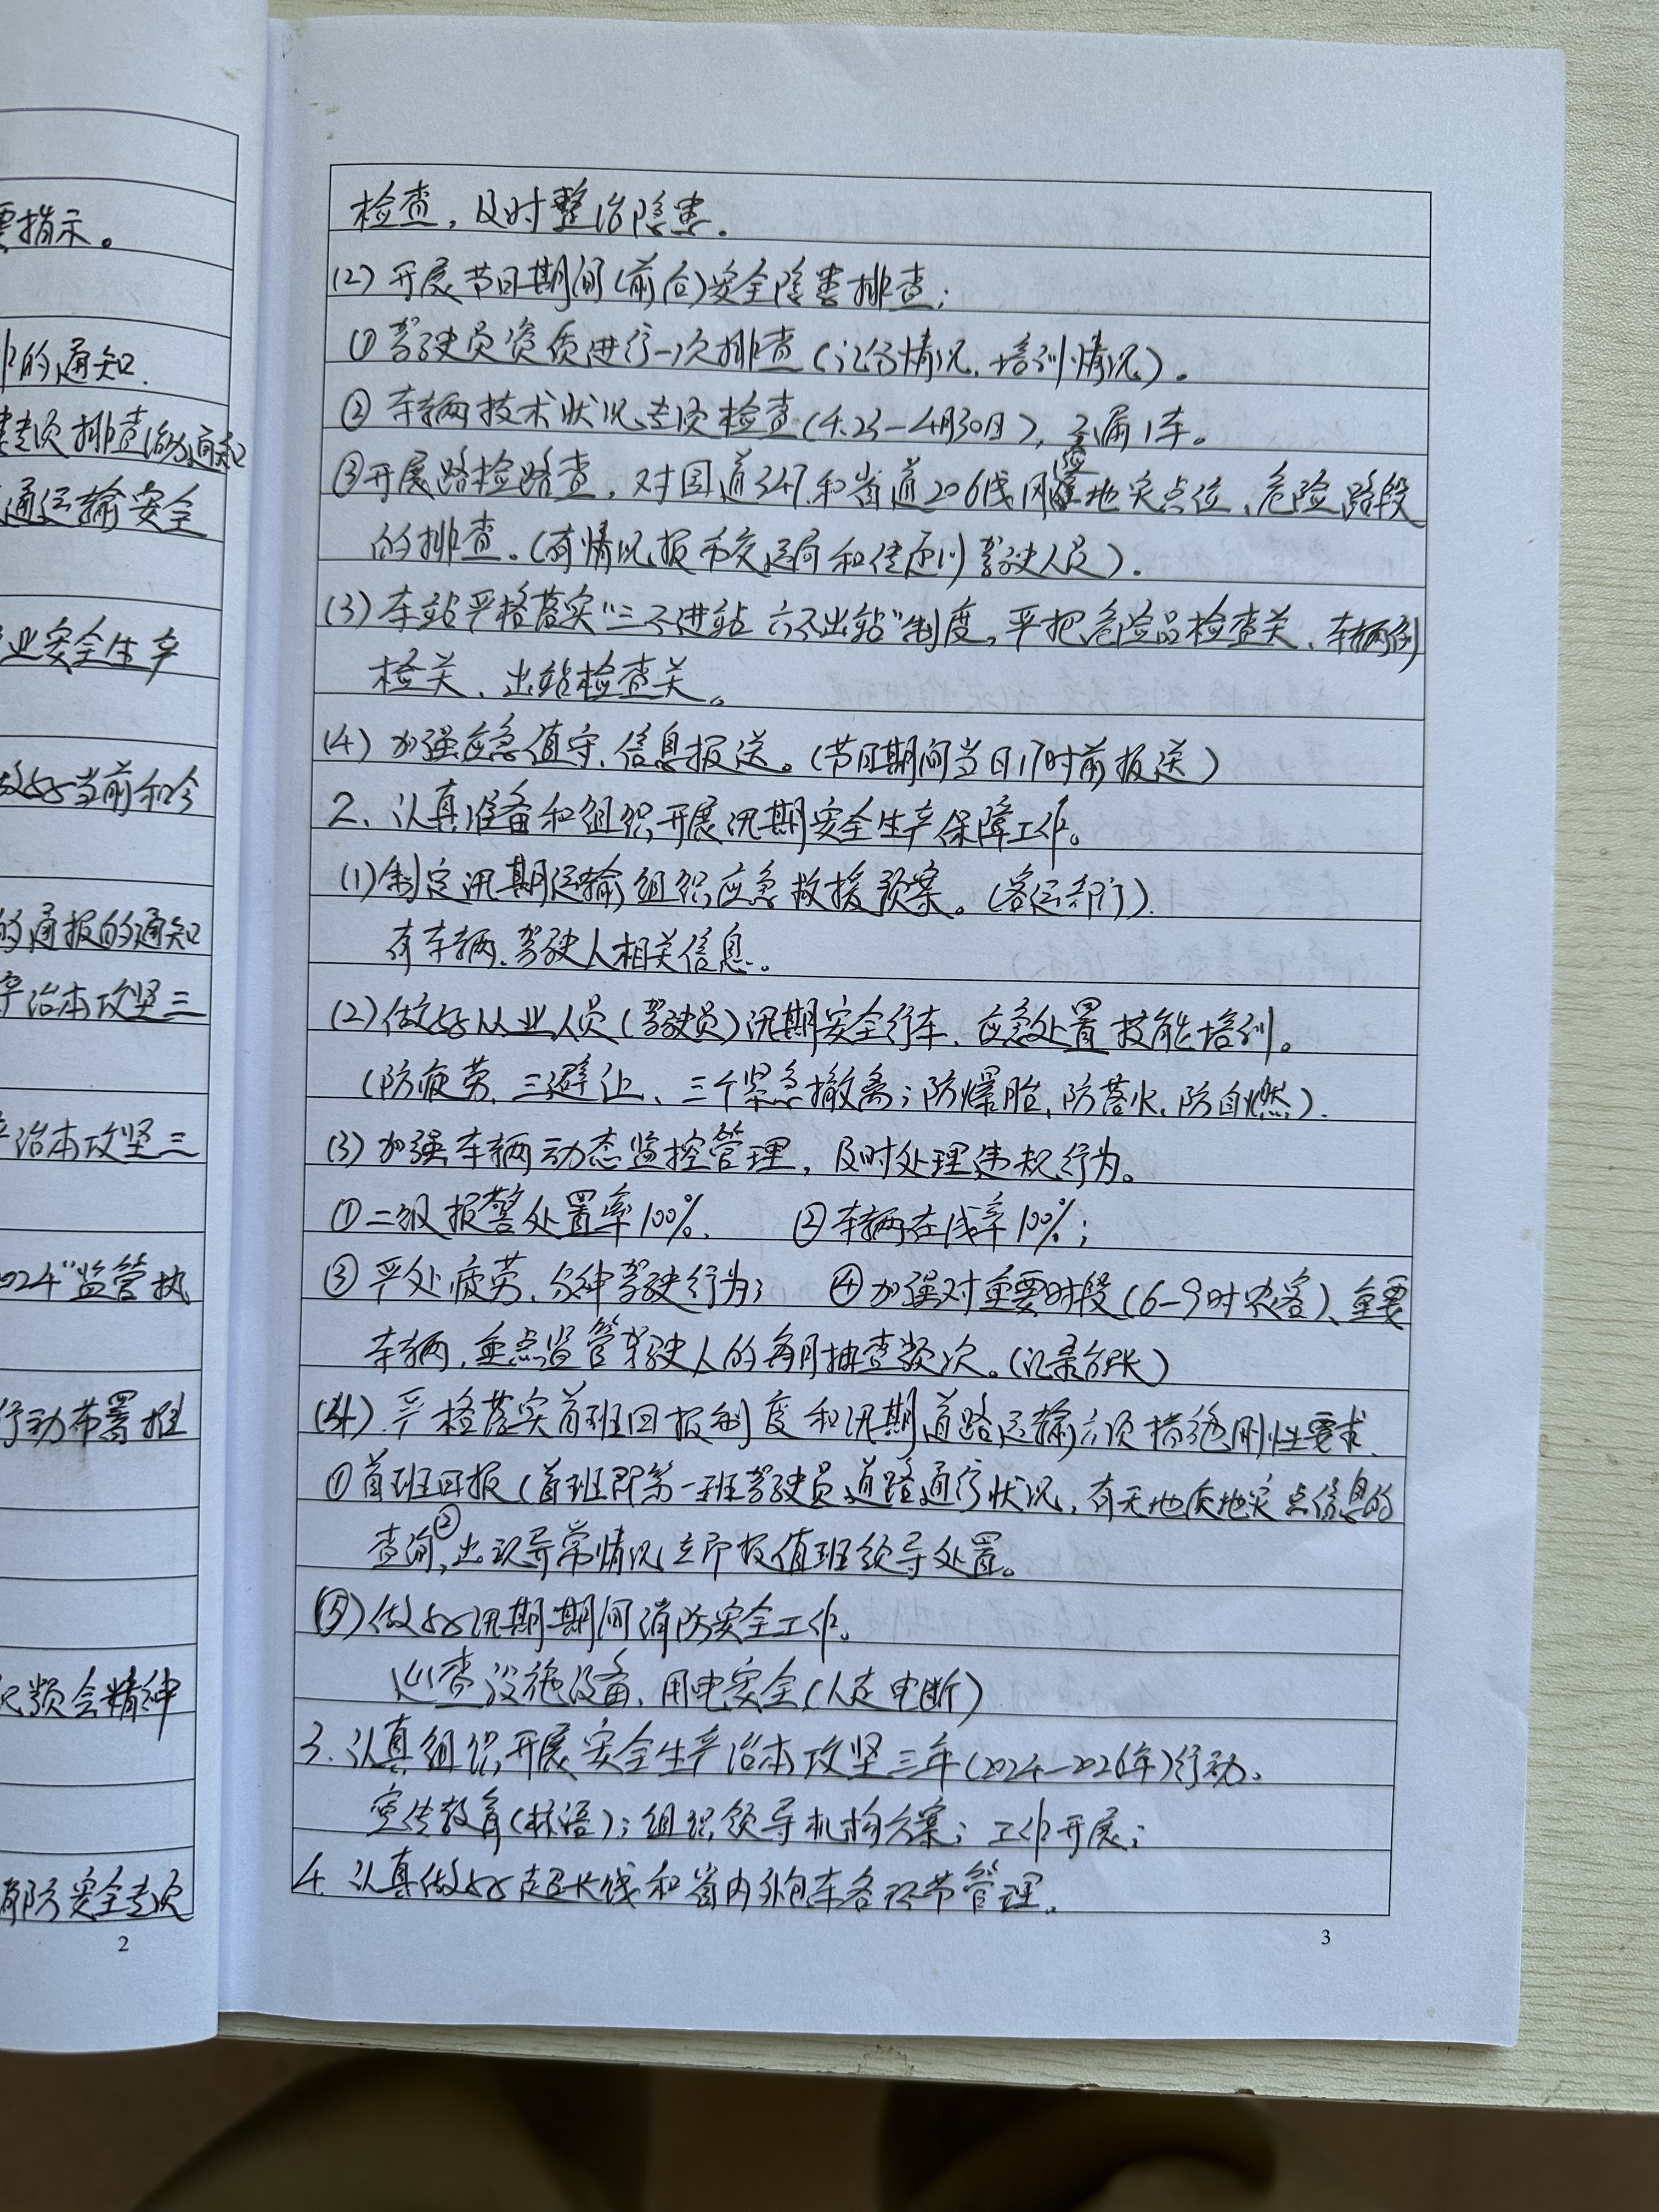 要指示。
的通知.
专项排查治动通知
通运输安全
业安全生产
做好当前和今
的通报的通知
产治本攻坚三
治本攻坚三
2024“监管执
行动布署推
视频会精神
消防安全专项
2
检查,及时整治隐患.
(2) 开展节日期间(前后)安全隐患排查;
① 驾驶员资质进行一次排查(记分情况、培训情况)。
② 车辆技术状况专项检查(4.23-4月30日),不漏1车。
③开展路检路查,对国道347和省道206线隐患地灾点位、危险路段
的排查。(有情况报市交运局和传达到驾驶人员).
(3) 车站严格落实“三不进站 六不出站”制度,严把危险品检查关、车辆例
检关、出站检查关。
(4) 加强应急值守、信息报送。(节日期间当日17时前报送)
2、认真准备和组织开展汛期安全生产保障工作。
(1)制定汛期运输组织应急救援预案。(客运部门).
有车辆、驾驶人相关信息。
(2) 做好从业人员(驾驶员)汛期安全行车、应急处置技能培训。
(防疲劳、三避让、三个紧急撤离;防爆胎、防落水、防自燃).
(3) 加强车辆动态监控管理,及时处理违规行为。
① 二级报警处置率100%. ②车辆在线率100%;
③ 严处疲劳、分神驾驶行为; ④加强对重要时段(6-9时农客)、重要
车辆、重点监管驾驶人的每月抽查频次。(记录台账)
(4). 严格落实首班回报制度和汛期道路运输六项措施刚性要求.
①首班回报(首班即第一班驾驶员道路通行状况,有无地质地灾点信息的
查询,②出现异常情况立即报值班领导处置。
(5) 做好汛期期间消防安全工作。
巡查设施设备、用电安全(人走电断)
3. 认真组织开展安全生产治本攻坚三年(2024-2026年)行动。
宣传教育(标语);组织领导机构方案;工作开展;
4. 认真做好超长线和省内外包车各环节管理。
3